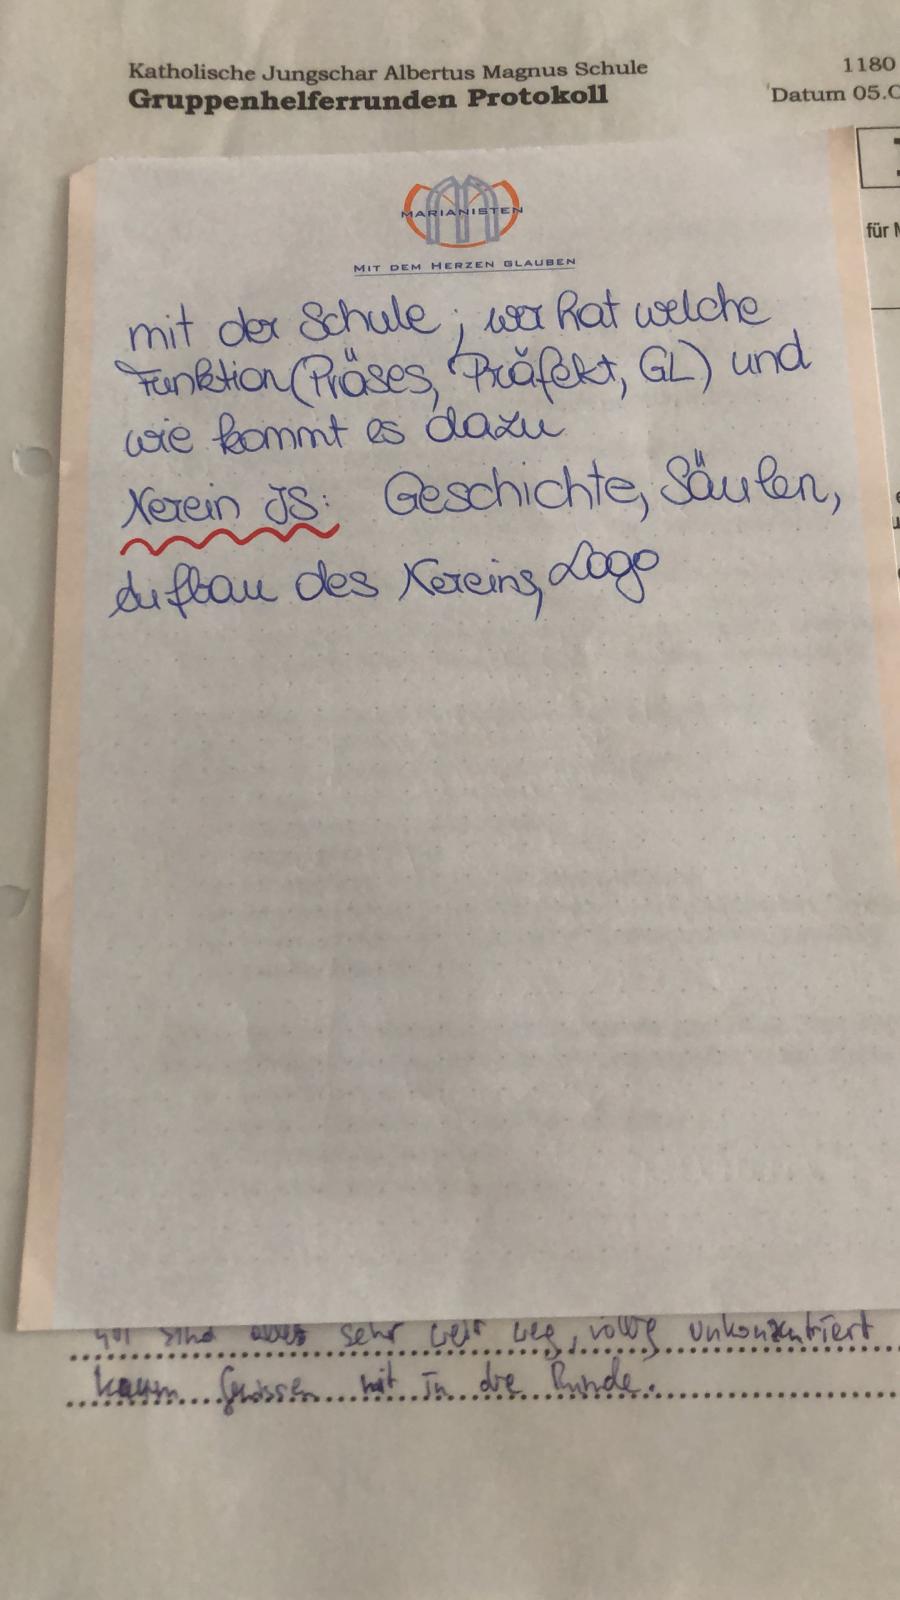 Katholische Jungschar Albertus Magnus Schule
1180
Gruppenhelferrunden Protokoll
Datum 05.
MARIANISTEN
MIT DEM HERZEN GLAUBEN
für
mit der Schule; wer hat welche
Funktion (Präses, Präfekt, GL) und
wie kommt es dazu
Verein JS: Geschichte, Säulen,
Aufbau des Vereins, Logo
sind sehr weit weg, völlig unkonzentriert
kaum mit in die Runde.